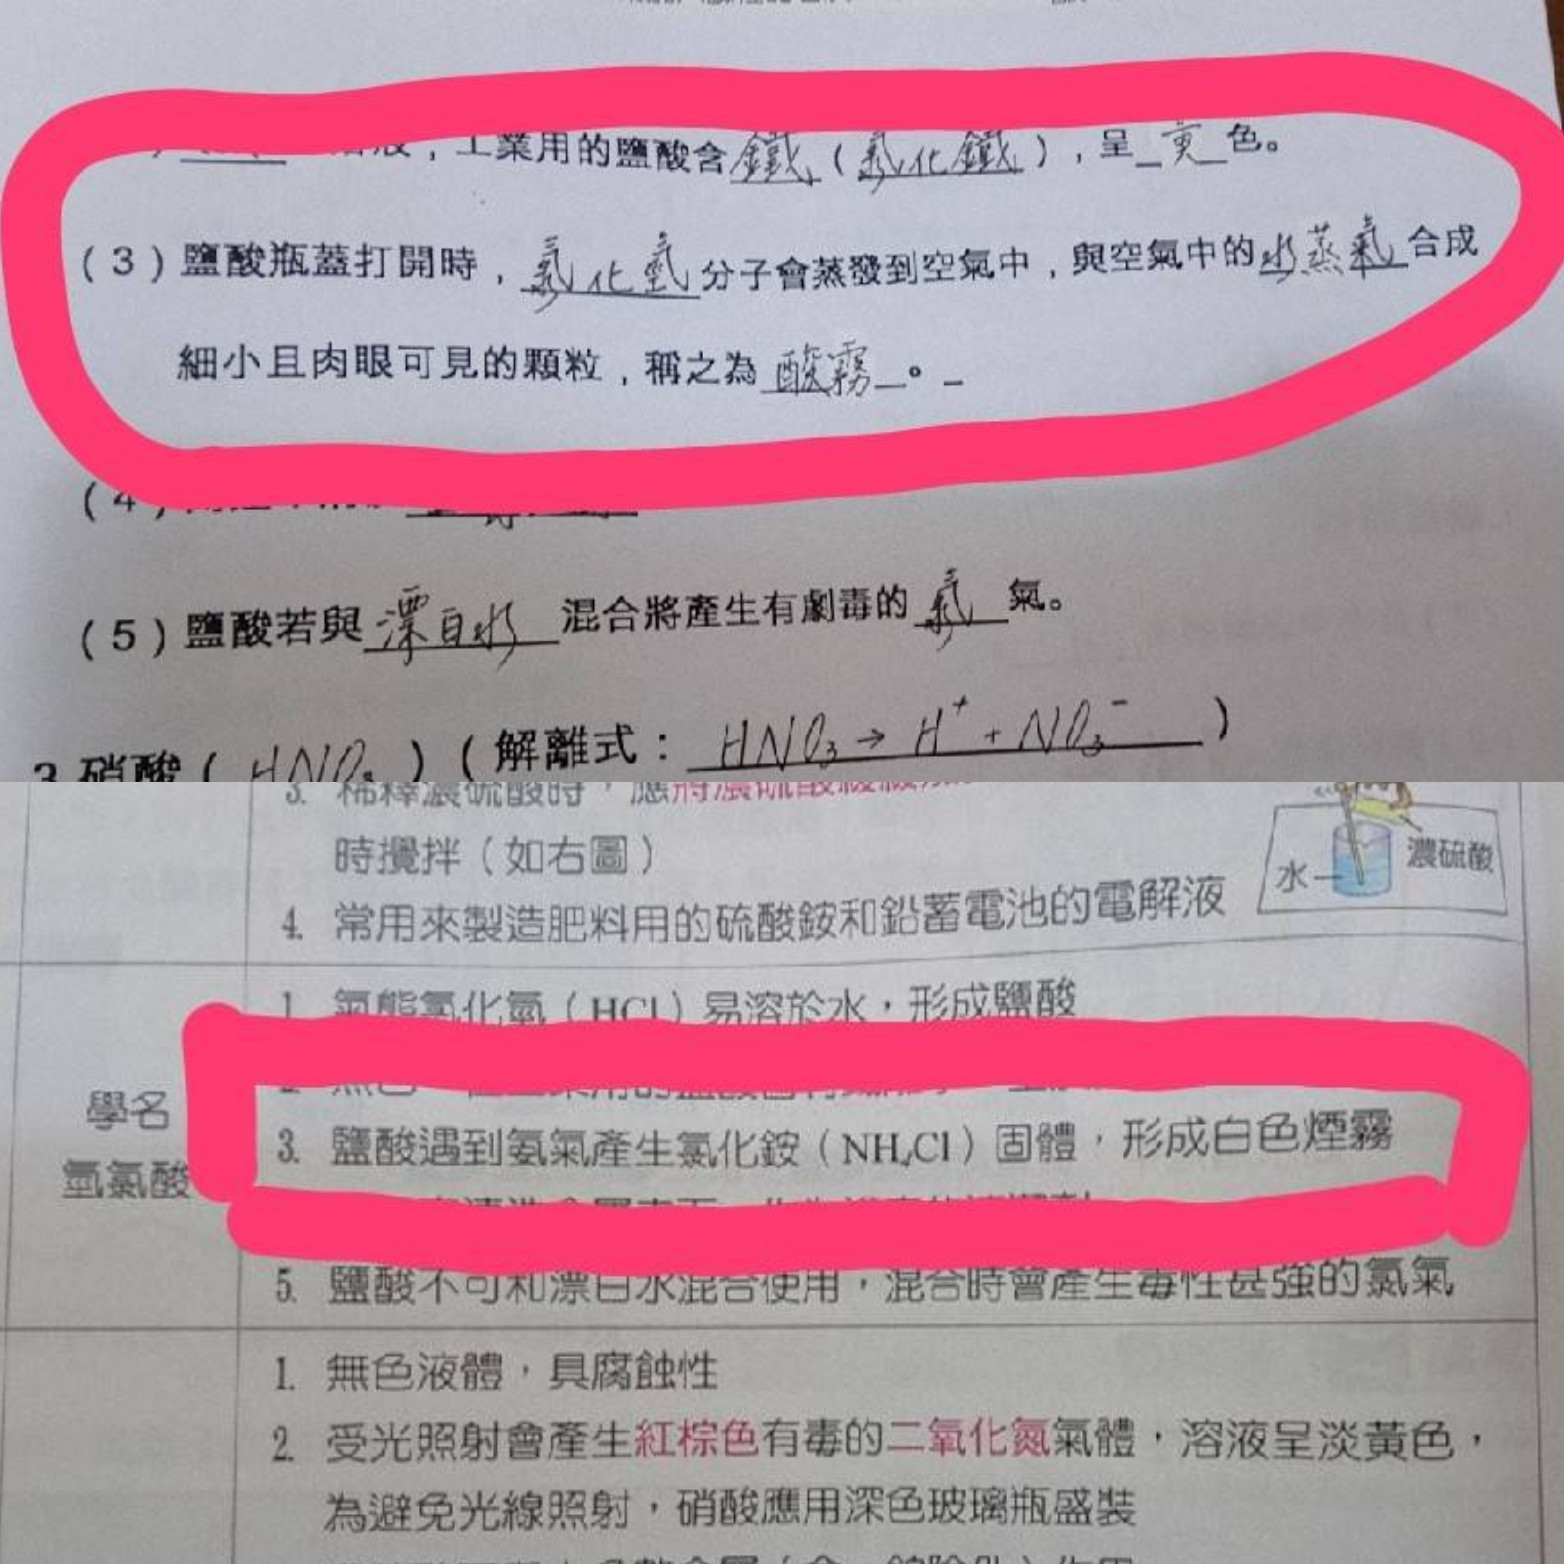 ，工業用的鹽酸含鐵（氯化鐵），呈黃色。
(3)鹽酸瓶蓋打開時，氯化氫分子會蒸發到空氣中，與空氣中的水蒸氣合成
細小且肉眼可見的顆粒，稱之為酸霧。
(4)
(5)鹽酸若與漂白水混合將產生有劇毒的氯氣。
3.硝酸(HNO₃)(解離式：HNO₃→H⁺+NO₃⁻)
3. 稀釋濃硫酸時，應將濃硫酸緩緩
時攪拌（如右圖）
水 濃硫酸
4. 常用來製造肥料用的硫酸銨和鉛蓄電池的電解液
學名
氫氯酸
1. 氣態氯化氫（HCl）易溶於水，形成鹽酸
3. 鹽酸遇到氨氣產生氯化銨（NH₄Cl）固體，形成白色煙霧
5. 鹽酸不可和漂白水混合使用，混合時會產生毒性甚強的氯氣
1. 無色液體，具腐蝕性
2. 受光照射會產生紅棕色有毒的二氧化氮氣體，溶液呈淡黃色，
為避免光線照射，硝酸應用深色玻璃瓶盛裝